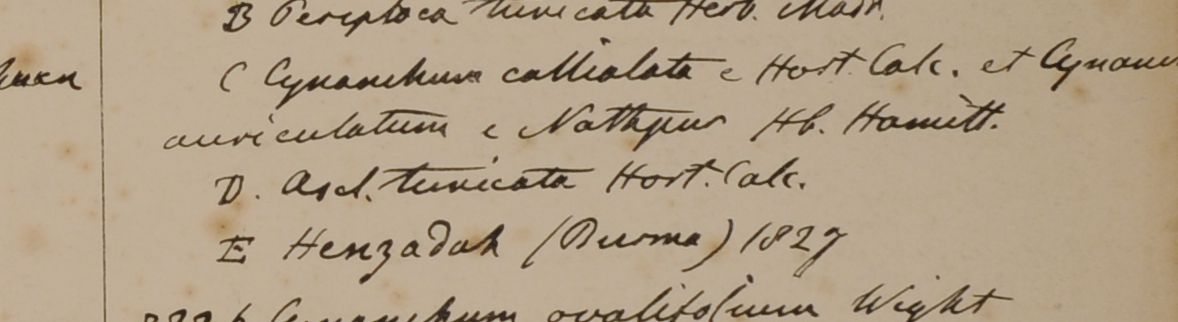 B Periploca tunicata Herb. Madr.
C Cynanchum callialata e Hort. Calc. et Cynanc
auriculatum e Nathpur Hb. Hamilt.
D. Ascl. tunicata Hort. Calc.
E Henzadah (Burma) 1827
Cynanchum ovalifolium Wight